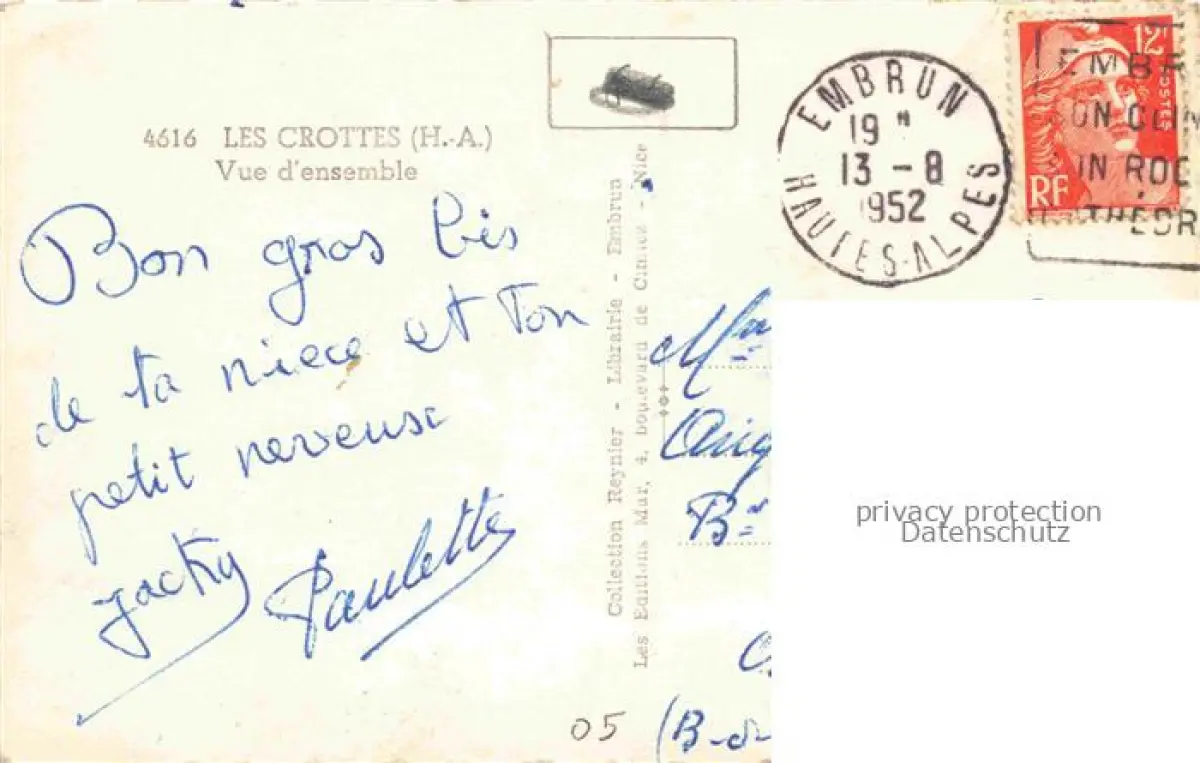 4616 LES CROTTES (H.-A.)
Vue d'ensemble
Bon gros bis
de ta niece et Ton
petit neveuse
Jacky Paulette
Collection Reynier - Librairie - Embrun
Les Editions Mar, 4, Boulevard de Cimiez - Nice
EMBRUN
19 H
13 - 8
1952
HAUTES-ALPES
12F
POSTES
RF
EMBR
SON CON
IN ROC
THÉOR
Bd
05
(B-d-
privacy protection
Datenschutz